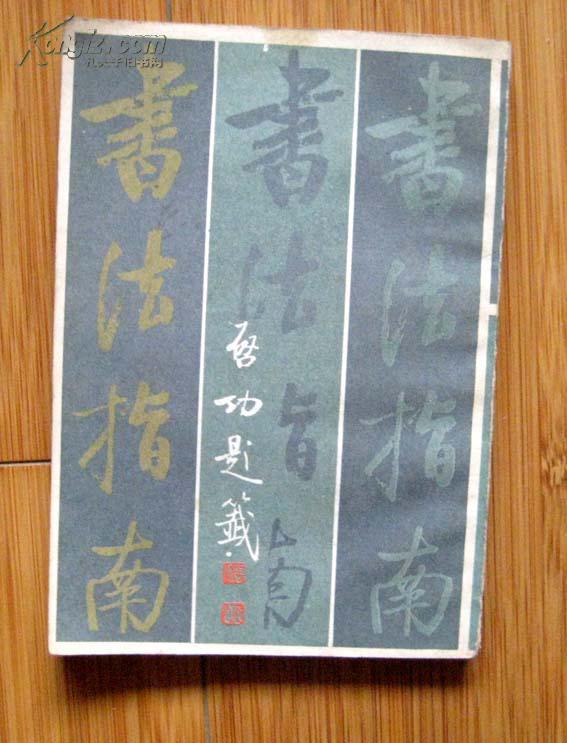 Kongfz.com
孔夫子旧书网
書法指南
書法指南
書法指南
启功题籤